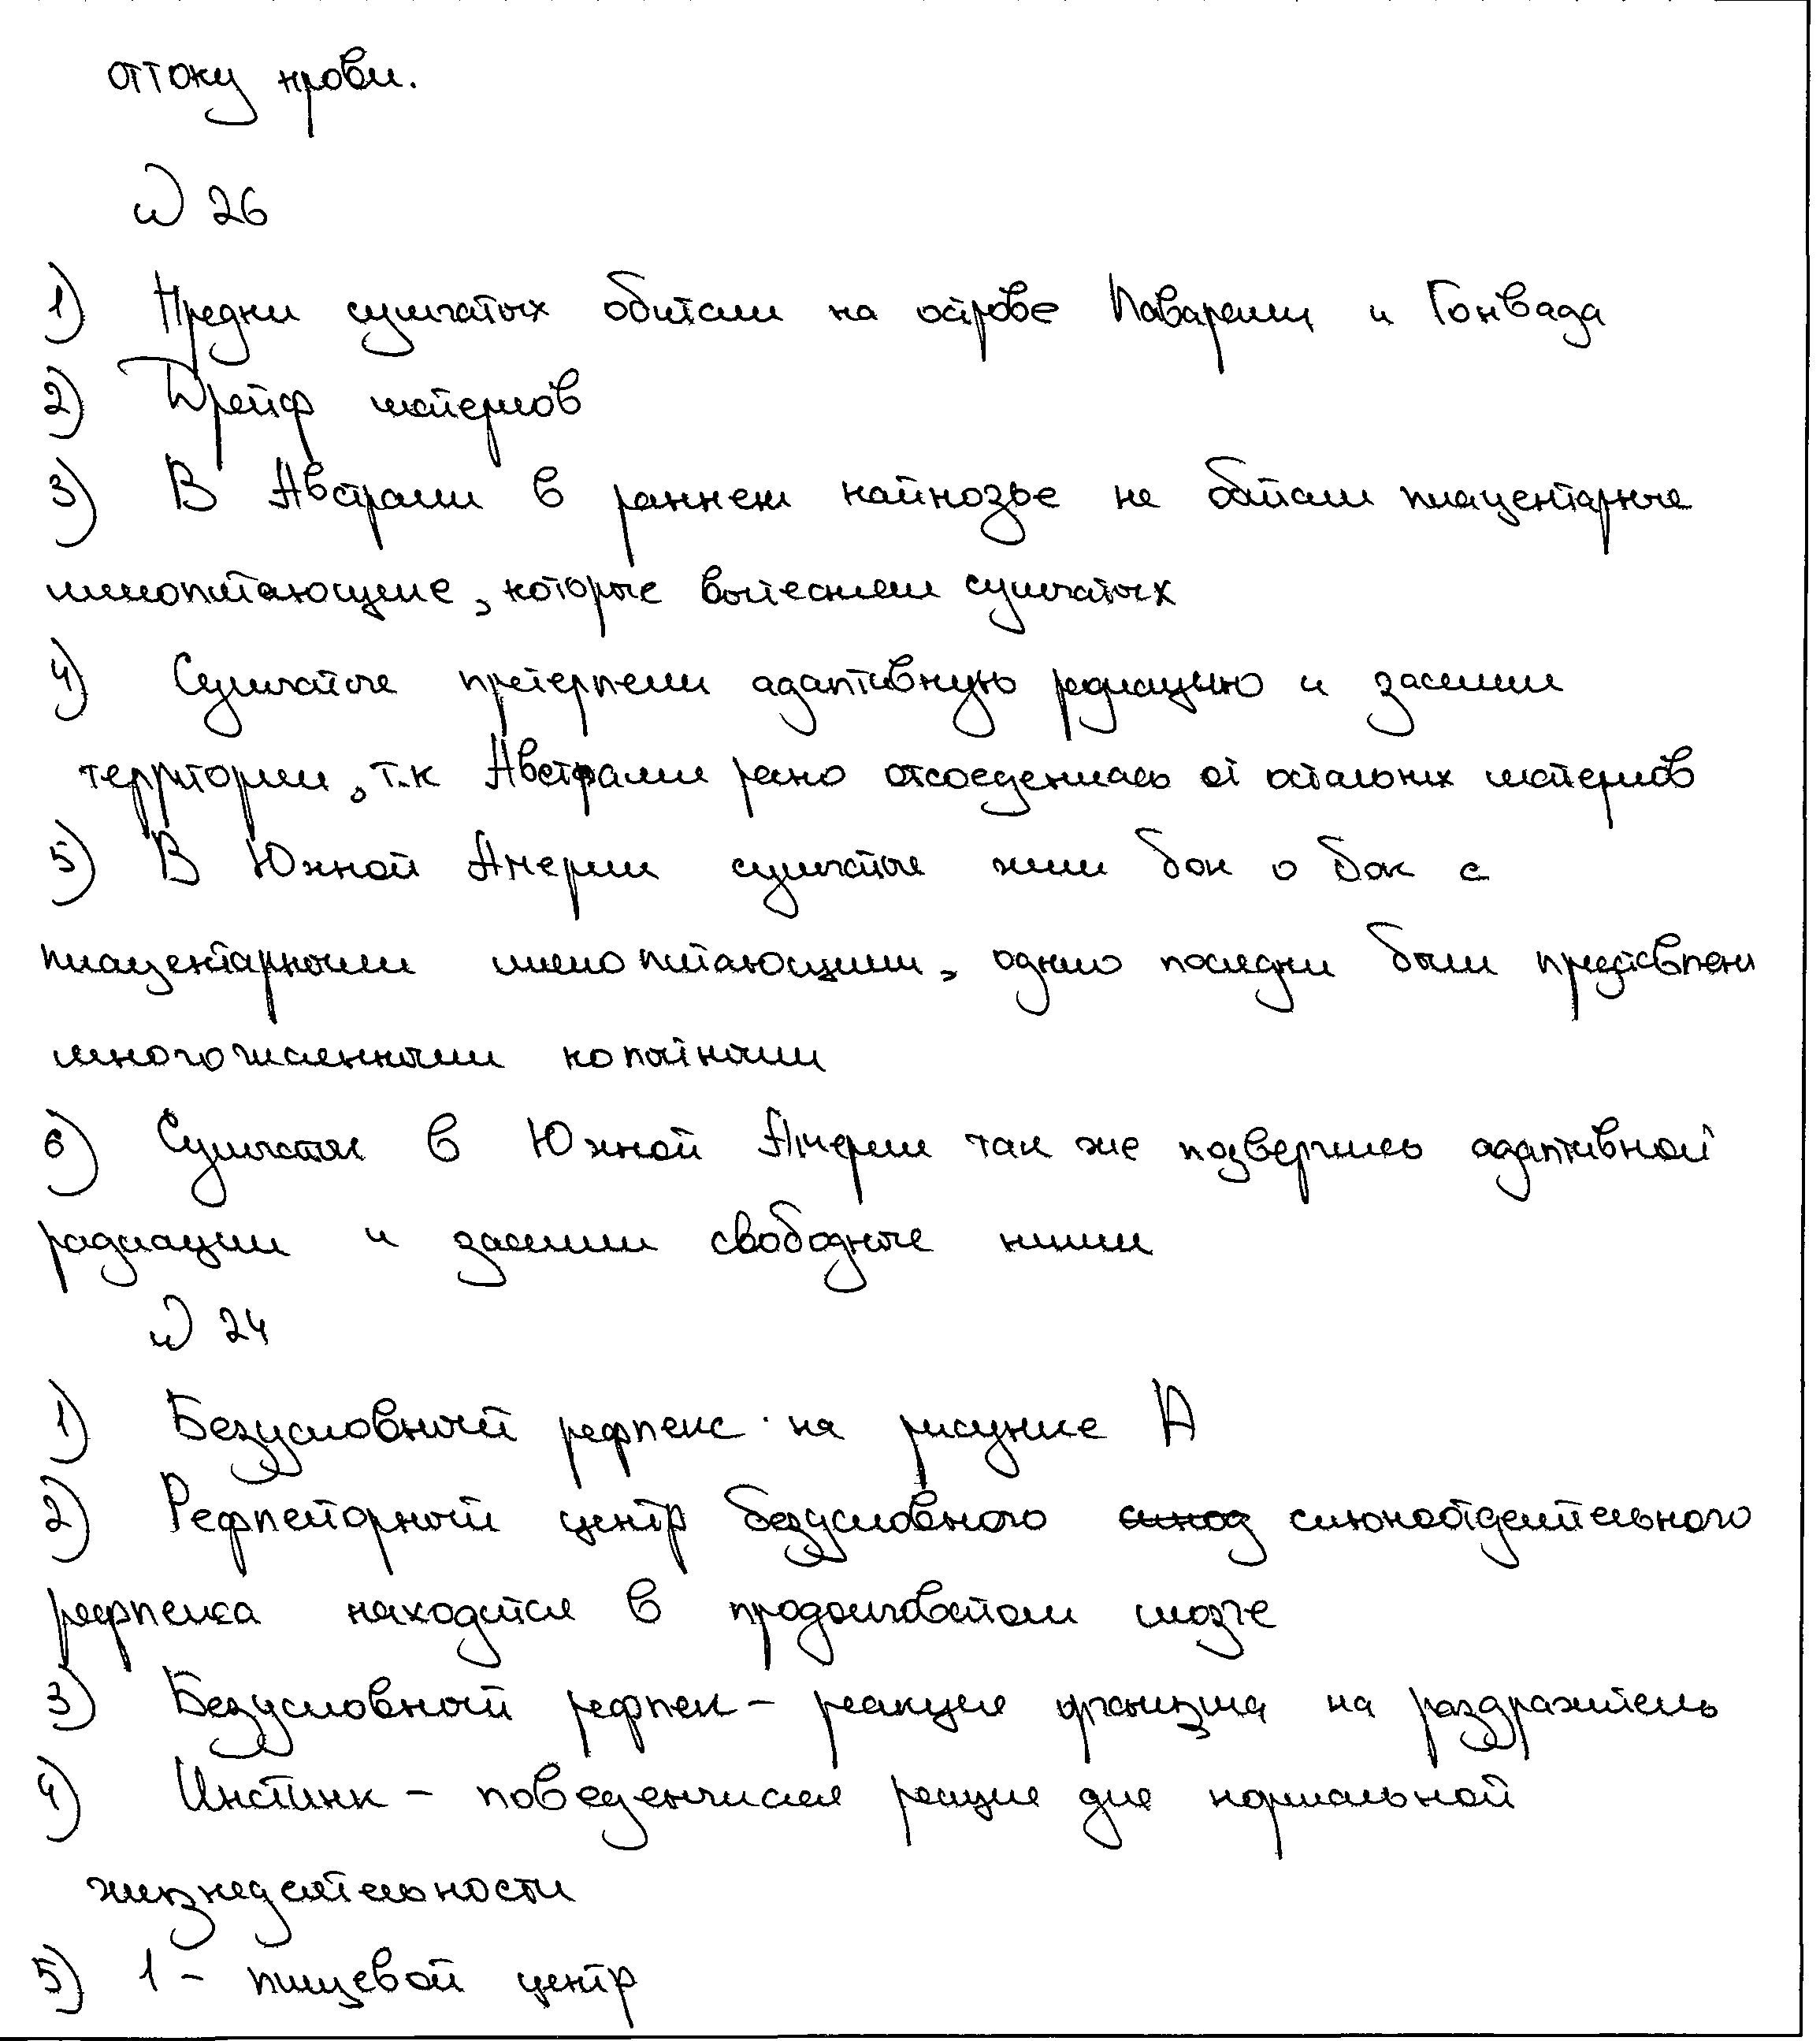 оттоку крови.
№ 26
1) Предки сумчатых обитали на острове Паварели и Гонвада
2) Дрейф материков
3) В Австралии в раннем кайнозое не обитали плацентарные
млекопитающие, которые вытеснили сумчатых
4) Сумчатые претерпели адаптивную радиацию и заселили
территории, т.к Австралия рано отсоеденилась от остальных материков
5) В Южной Америки сумчатые жили бок о бок с
плацентарными млекопитающими, однако последни были представлены
многочисленными копытными
6) Сумчатые в Южной Америки так же подверглись адаптивной
радиации и заселили свободные ниши
№ 24
1) Безусловный рефлекс на рисунке А
2) Рефлеторный центр безусловного слюноотделительного
рефлекса находится в продолговатом мозге
3) Безусловный рефлек - реакция организма на раздражитель
4) Инстинк - поведенческая реакция для нормальной
жизнедеятельности
5) 1 - пищевой центр